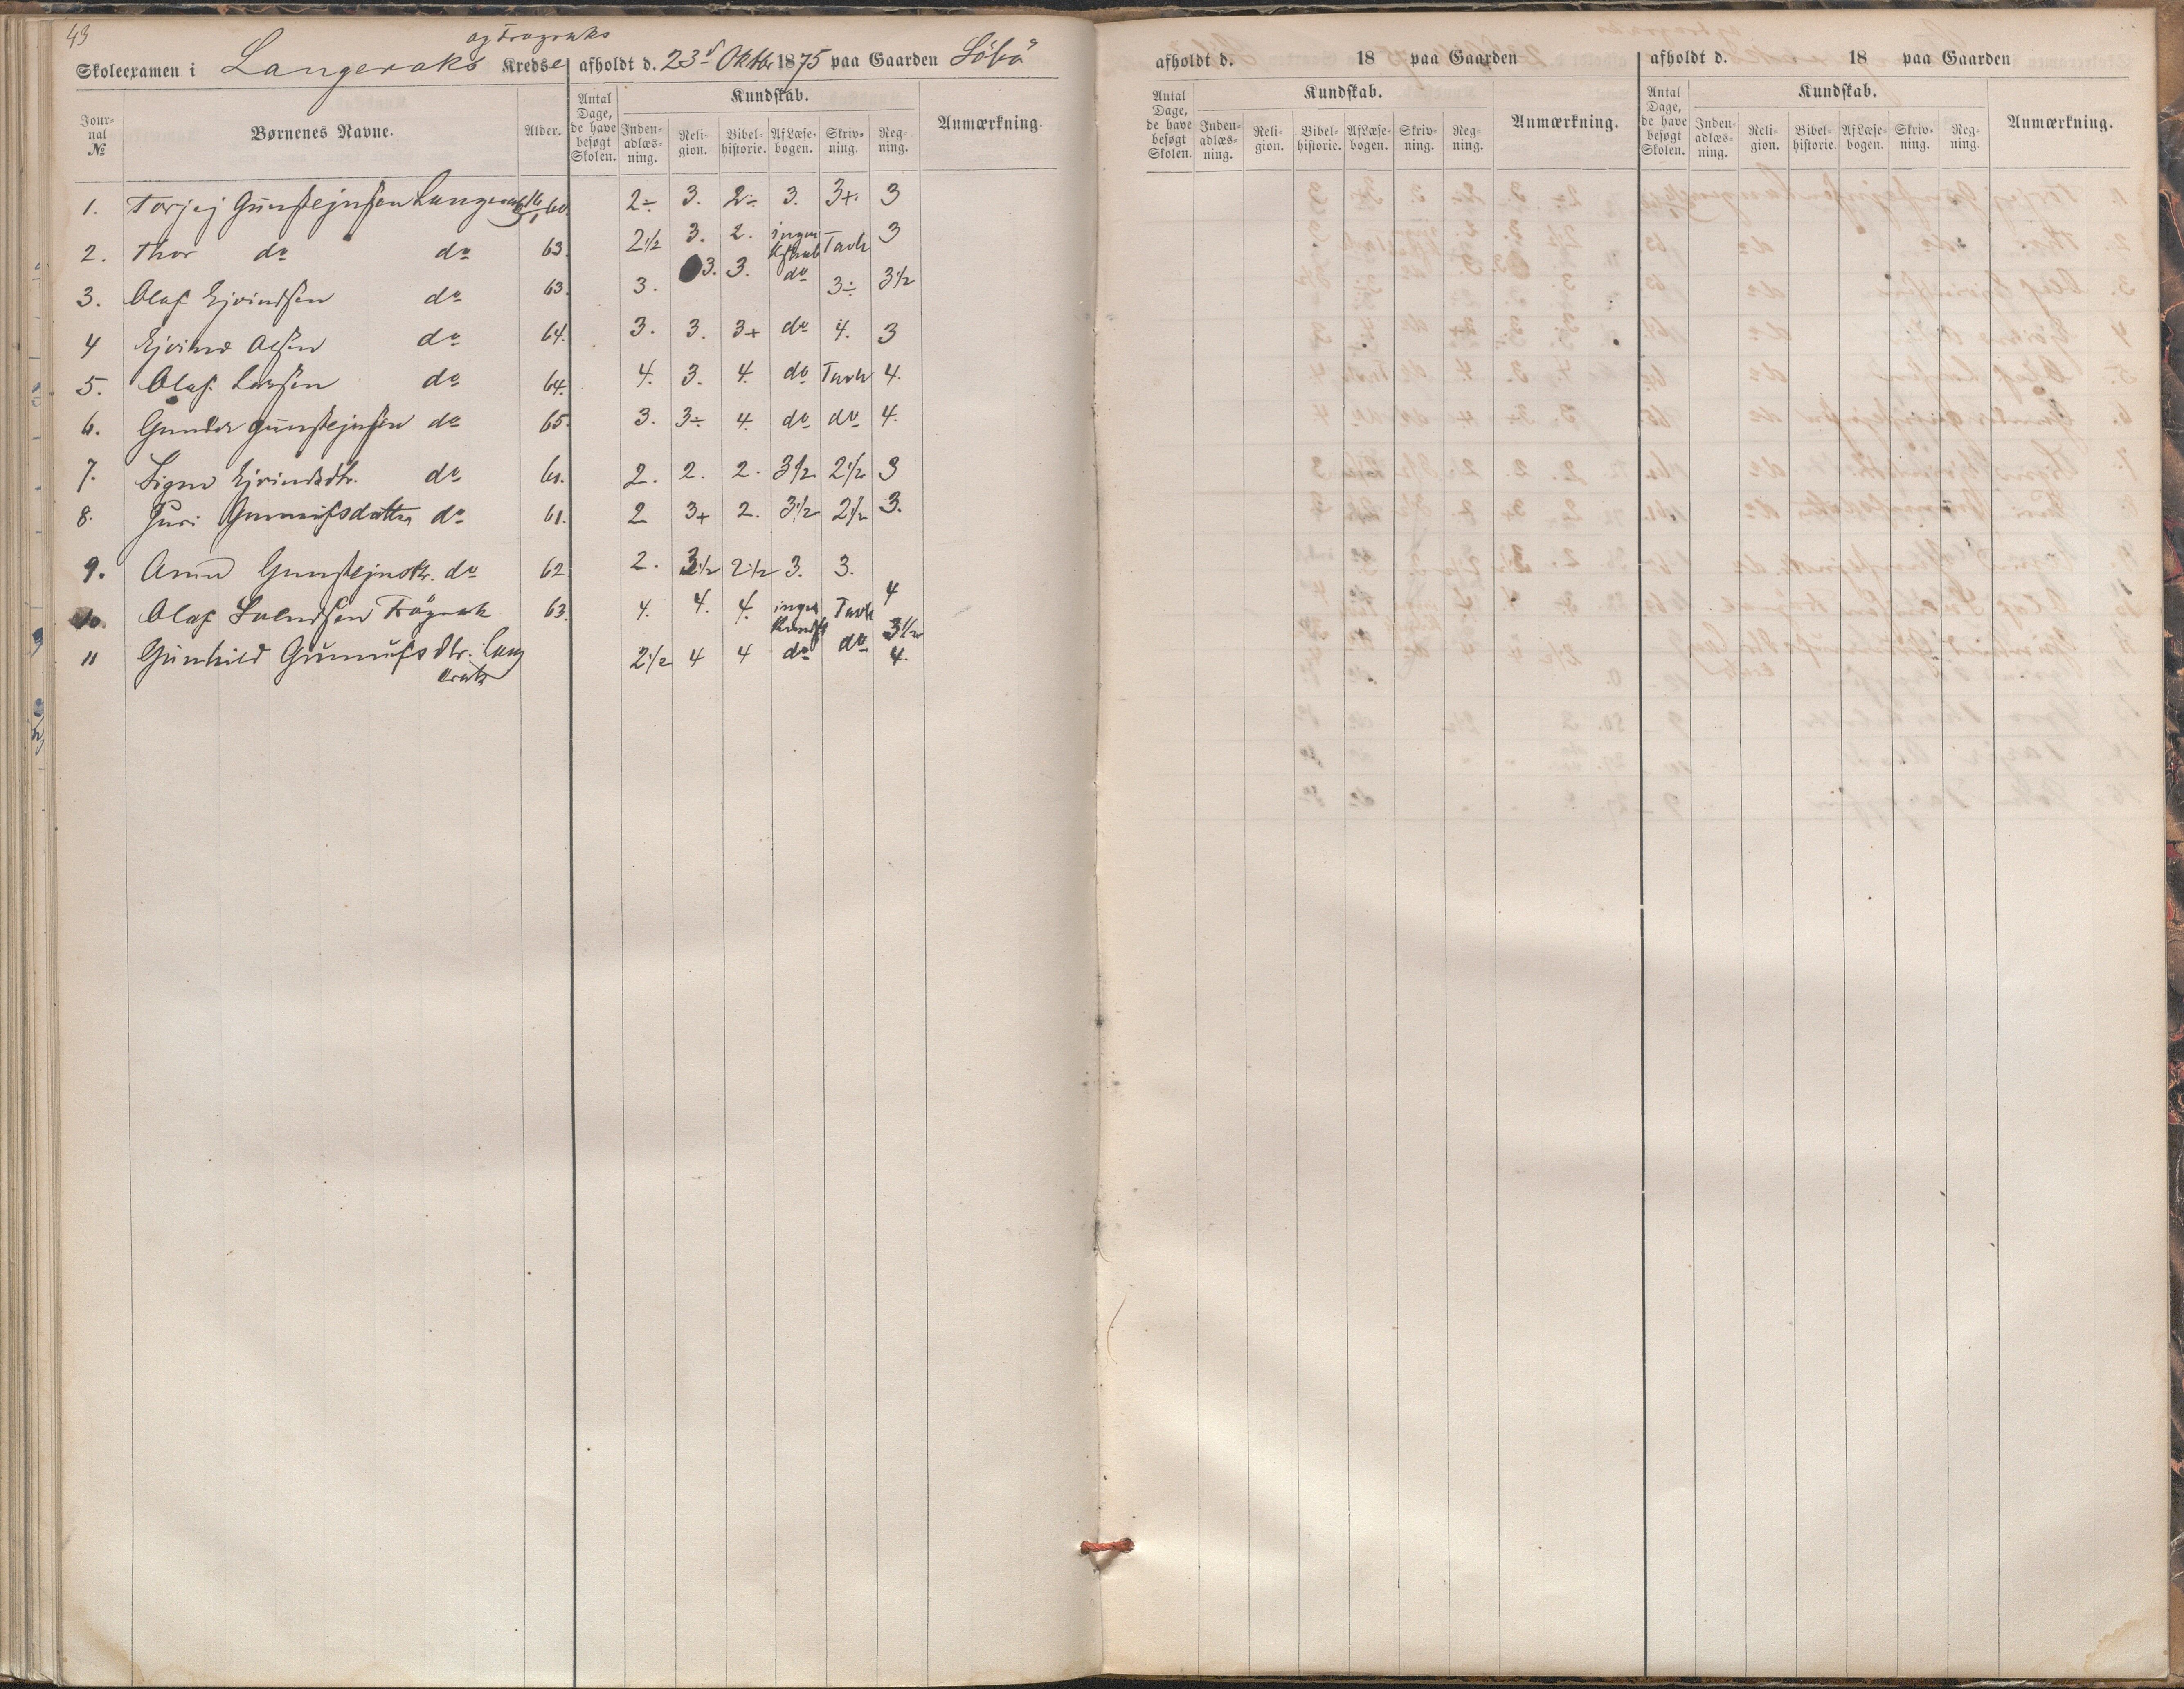 43
og Trogeraks
Skoleexamen i Langeraks Kredse afholdt d. 23d Oktbr 1875 paa Gaarden Söbö
Jour-nal № Børnenes Navne. Alder. Antal Dage, de have besøgt Skolen. Kundskab. Inden-adlæs-ning. Reli-gion. Bibel-historie. Af Læse-bogen. Skriv-ning. Reg-ning. Anmærkning.
1. Torjej Gunstejnsen Langerak 16/1 60 2÷ 3. 2÷ 3. 3+. 3
2. Thor do do 63. 2 1/2 3. 2. ingen Kskab Tavle 3
3. Olaf Ejvindsen do 63. 3. 3. 3. do 3÷ 3 1/2
4 Ejvind Olsen do 64. 3. 3. 3+ do 4. 3
5. Olaf Larsen do 64. 4. 3. 4. do Tavle 4.
6. Gunder Gunstejnsen do 65. 3. 3÷ 4. do do 4.
7. Signe Ejvindsdtr. do 61. 2. 2. 2. 3 1/2 2 1/2 3
8. Guri Gunnufsdatter do 61. 2 3+ 2. 3 1/2 2 1/2 3.
9. Anne Gunstejnsdtr. do 62 2. 3 1/2 2 1/2 3. 3. 4
10. Olaf Svendsen Trögerak 63. 4. 4. 4. ingen Kundsk Tavle 3 1/2
11 Gunhild Gunnufsdtr. Lang 2 1/2 4 4 do do 4.
erak
afholdt d. 18 paa Gaarden
Antal Dage, de have besøgt Skolen. Kundskab. Inden-adlæs-ning. Reli-gion. Bibel-historie. Af Læse-bogen. Skriv-ning. Reg-ning. Anmærkning.
afholdt d. 18 paa Gaarden
Antal Dage, de have besøgt Skolen. Kundskab. Inden-adlæs-ning. Reli-gion. Bibel-historie. Af Læse-bogen. Skriv-ning. Reg-ning. Anmærkning.